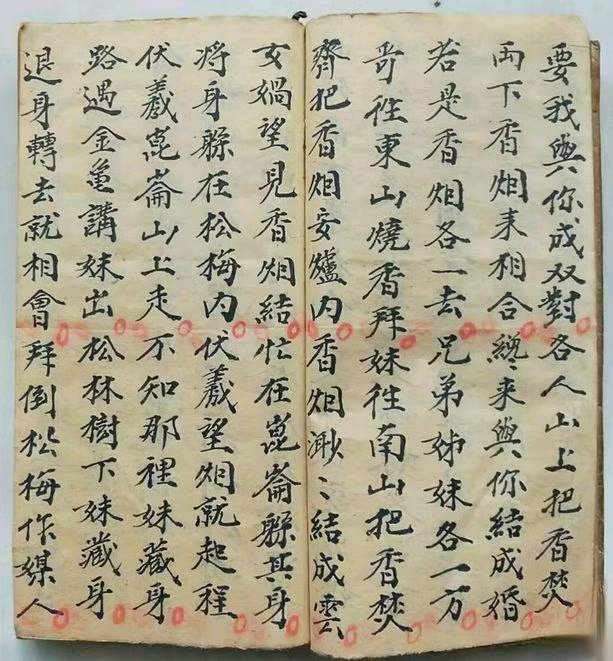 要我與你成双對各人山上把香焚
両下香烟来相合終来與你結成婚
若是香烟各一去兄弟姊妹各一方
哥往東山燒香拜妹往南山把香焚
齊把香烟安爐内香烟渺〻結成雲
女媧望見香烟結忙在崑崙躲其身
将身躲在松梅内伏羲望烟就起程
伏羲崑崙山上走不知那裡妹藏身
路遇金龟講妹出松林樹下妹藏身
退身轉去就相會拜倒松梅作媒人